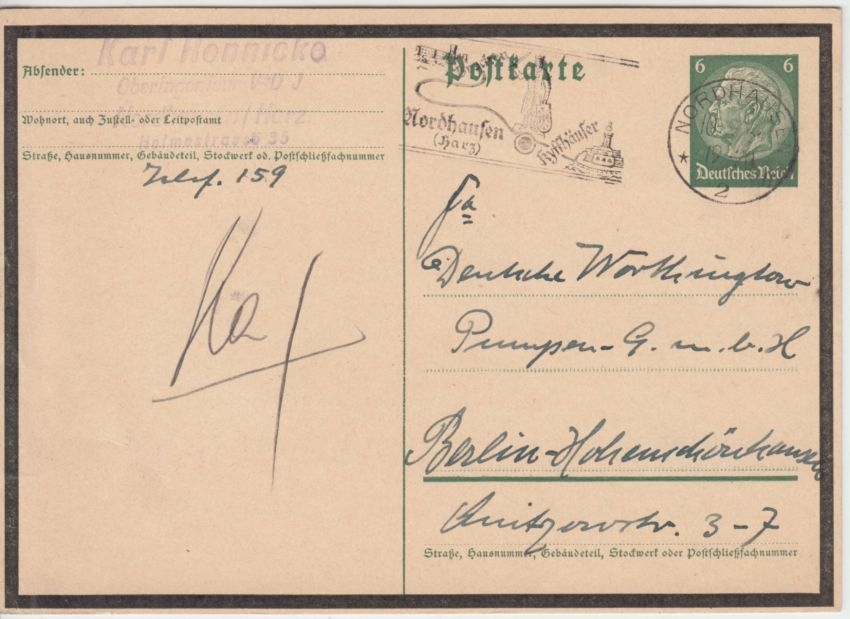 Karl Honnicke
Absender:
Oberingenieur VDJ
Nordhausen/Harz.
Wohnort, auch Zustell- oder Leitpostamt
35
Straße, Hausnummer, Gebäudeteil, Stockwerk od. Postschließfachnummer
Telef. 159
Postkarte
Nordhausen
(Harz)
Kyffhäuser
NORDHAUSEN
2
6 6
Deutsches Reich
Fa
Deutsche Worthington
Pumpen-G.m.b.H
Berlin-Hohenschönhausen
3-7
Straße, Hausnummer, Gebäudeteil, Stockwerk oder Postschließfachnummer